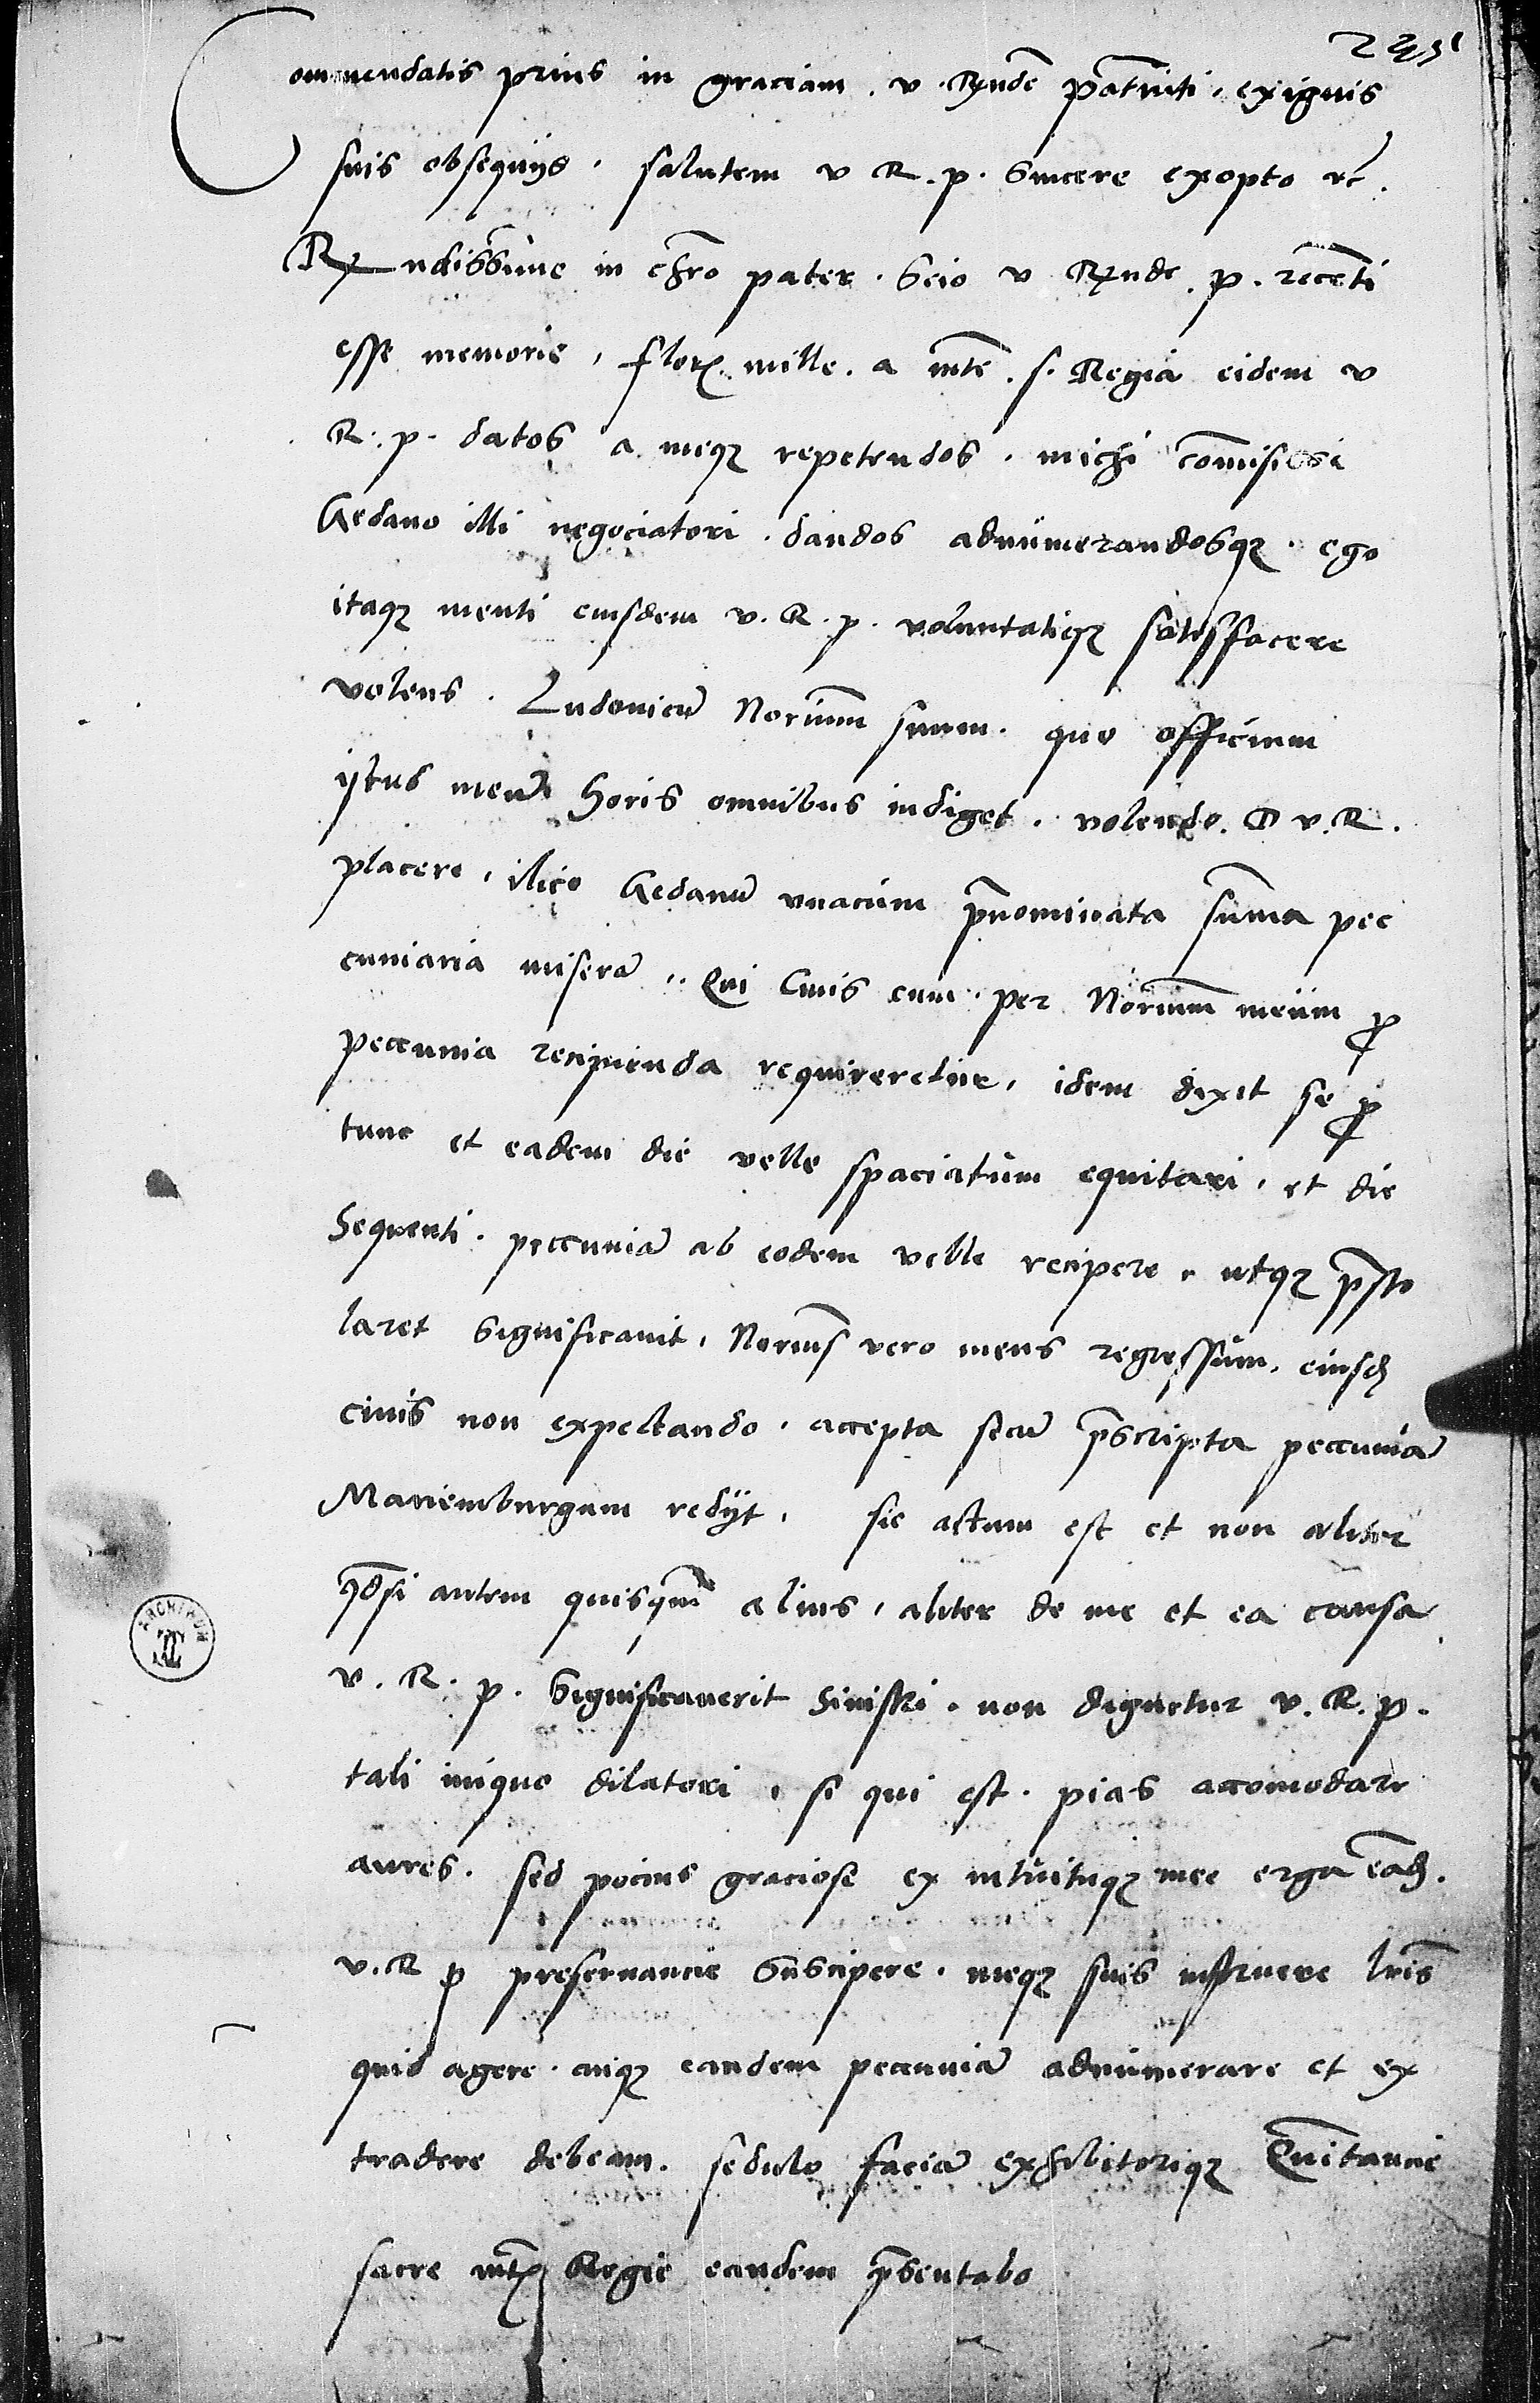 Commendatis prius in graciam . v . Rx̅nde p̅atruiti . exiguis
suis obsequijs . salutem v R . p . Sincere exopto rc̄ .
Rx̅ndissime in chr̅o pater . Scio v Rx̅nde . p . rece̅ti
esse memorie , flor. mille . a mte̅ . s . Regia eidem v
R . p . datos a meqꝫ repetendos . michi com̅isisse
Gedano illi negociatori . dandos adnumerandosqꝫ . ego
itaqꝫ menti eiusdem v . R . p . voluntatiqꝫ satisfacere
volens . Ludovicu̅ Noriu̅m suum . quo officium
istus meu̅ horis omnibus indiget . volendo . D v . R .
placere , ilico Gedanu̅ vnacum p̅nominata sum̅a pec
cuniaria misera̅ . Qui Civis cum . per Noriu̅m meum ꝓ
peccunia recipienda requireretur , idem dixit se ꝓ
tunc et eadem die velle spaciatum equitari , et die
Sequenti . peccunia̅ ab eodem velle recipere , utqꝫ p̅sto
laret Significavit , Noriu̅s vero meus regressum , eiusd.
civis non expectando , accepta secu̅ p̅scripta peccunia̅
Mariemburgum redijt , sic actum est et non aliter
qd̅si autem quisqua̅ alius , aliter de me et ea causa
v . R . p . Significaverit Sinistri . non dignetur v . R . p .
tali iniquo dilatori , si qui est . pias accomodare
aures . sed pocius graciose ex intuituqꝫ mee erga ead̅ .
v . R p preservancie Suscipere . meqꝫ suis instruere lr̅is
quid agere . cuiqꝫ eandem peccunia̅ adnumerare et ex
tradere debeam . sedulo facia̅ exhibitoriqꝫ Quitancie
sacre mt̅. Regie eandem p̅sentabo
ARCHIVUM